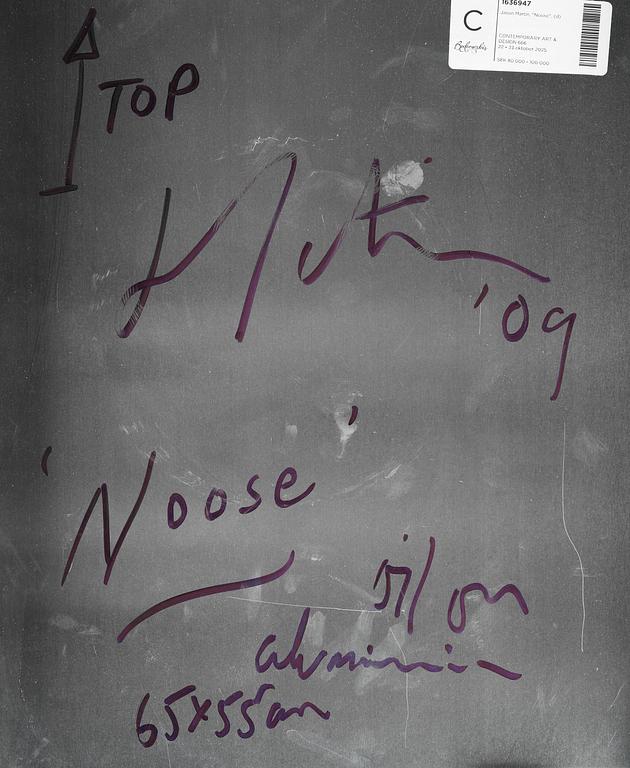 1636947
C
Jason Martin, "Noose", (d)
Bukowskis
CONTEMPORARY ART &
DESIGN 666
22 - 23 oktober 2025
SEK 80 000 - 100 000
TOP
'09
'Noose'
oil on
aluminium
65x55cm